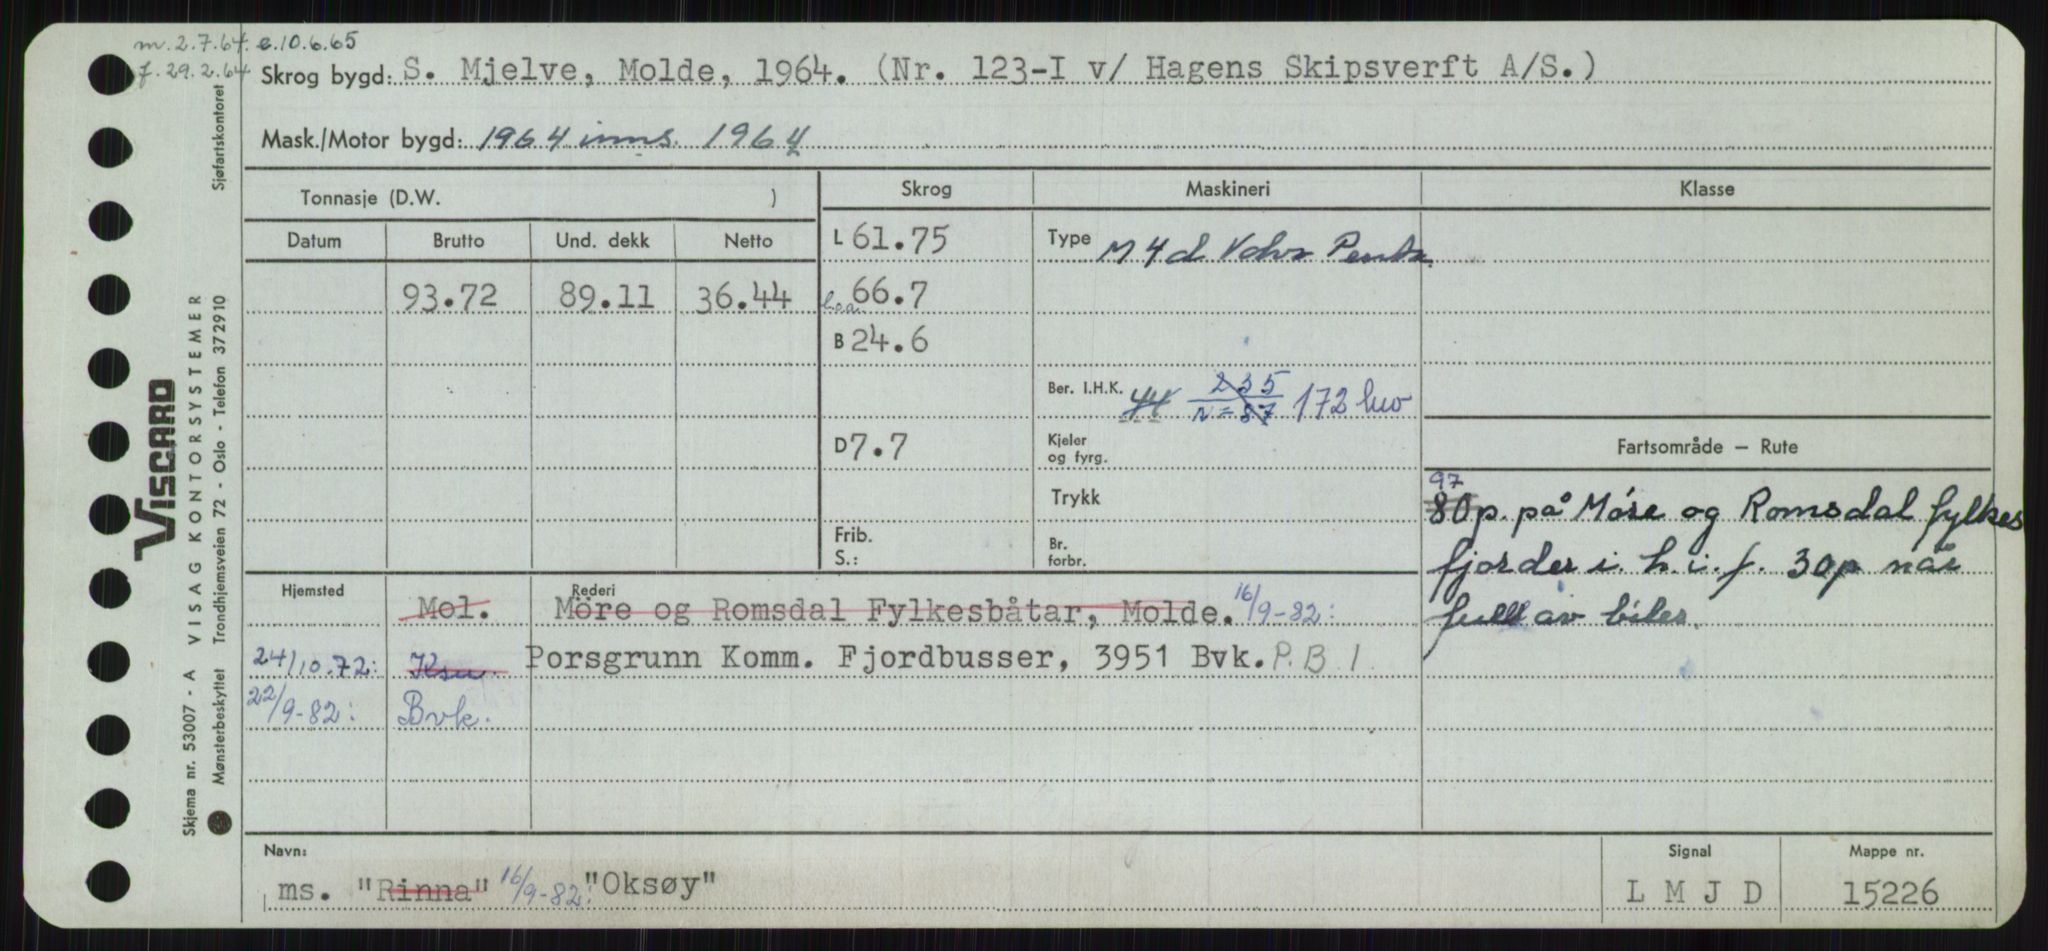 m. 2.7.64. e.10.6.65
f. 29.2.64
Skrog bygd: S. Mjelve, Molde, 1964. (Nr. 123-I v/ Hagens Skipsverft A/S.)
Mask./Motor bygd: 1964 inns. 1964
Tonnasje (D.W. )
Skrog
Maskineri
Klasse
Datum
Brutto
Und. dekk
Netto
93.72
89.11
36.44
L 61.75
l.o.a. 66.7
B 24.6
D 7.7
Frib.
S.:
Type M 4 d Volvo Penta.
Ber. I.H.K. 44 235 172 hw
n = 87
Kjeler
og fyrg.
Trykk
Br.
forbr.
Fartsområde – Rute
97
80p. på Möre og Romsdal fylkes
fjorder i. h. i. f. 30p når
full av biler.
Hjemsted
Rederi
Mol. Möre og Romsdal Fylkesbåtar, Molde. 16/9-82:
24/10.72: Ksu. Porsgrunn Komm. Fjordbusser, 3951 Bvk. P.B 1.
22/9-82: Bvk.
Navn:
ms. "Rinna" 16/9-82: "Oksøy"
Signal
L M J D
Mappe nr.
15226
VISCARD
Skjema nr. 53007 - A VISAG KONTORSYSTEMER
Mønsterbeskyttet Trondhjemsveien 72 - Oslo - Telefon 372910 Sjøfartskontoret